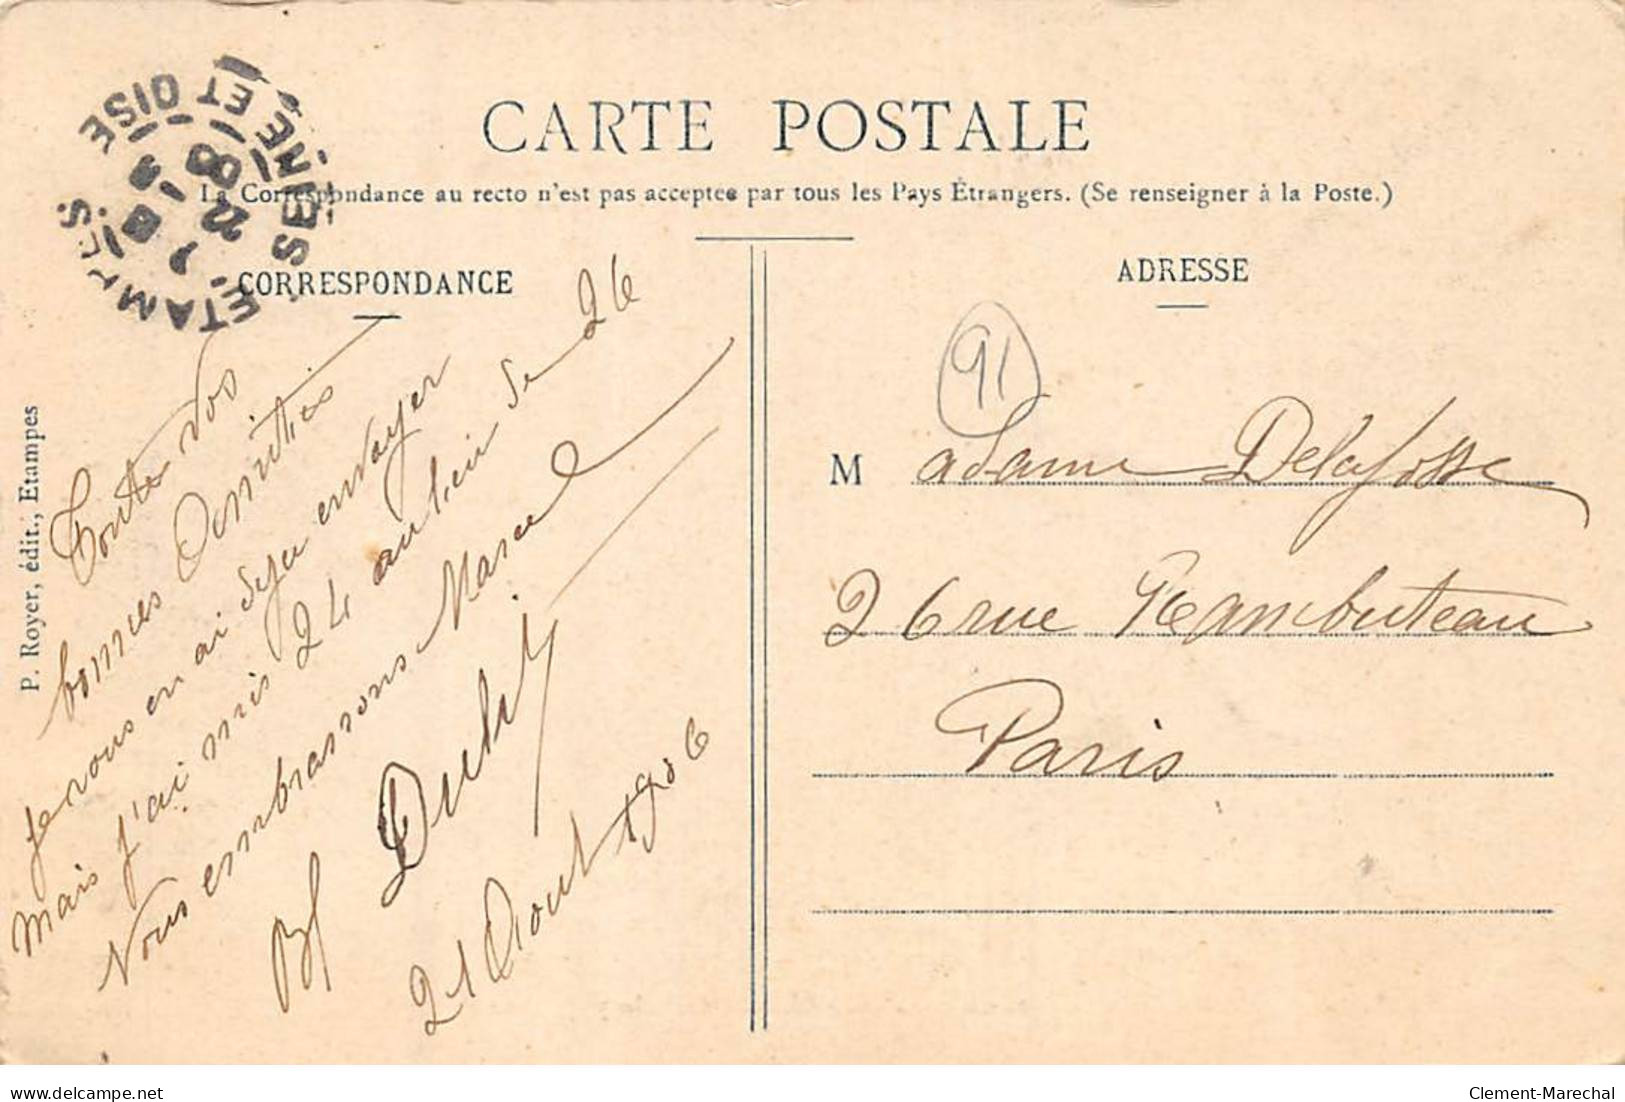 CARTE POSTALE
La Correspondance au recto n'est pas acceptee par tous les Pays Étrangers. (Se renseigner à la Poste.)
CORRESPONDANCE
ADRESSE
ETAMPES
SEINE ET OISE
P. Royer, édit., Etampes
Toutes vos
bonnes Amitiés
je vous en ai deja envoyer
mais j'ai mis 24 au lieu de 26
Nous embrassons Marcel
21 Aout 1906
91
Madame Delafosse
26 rue Rambuteau
Paris
www.delcampe.net
Clement-Marechal